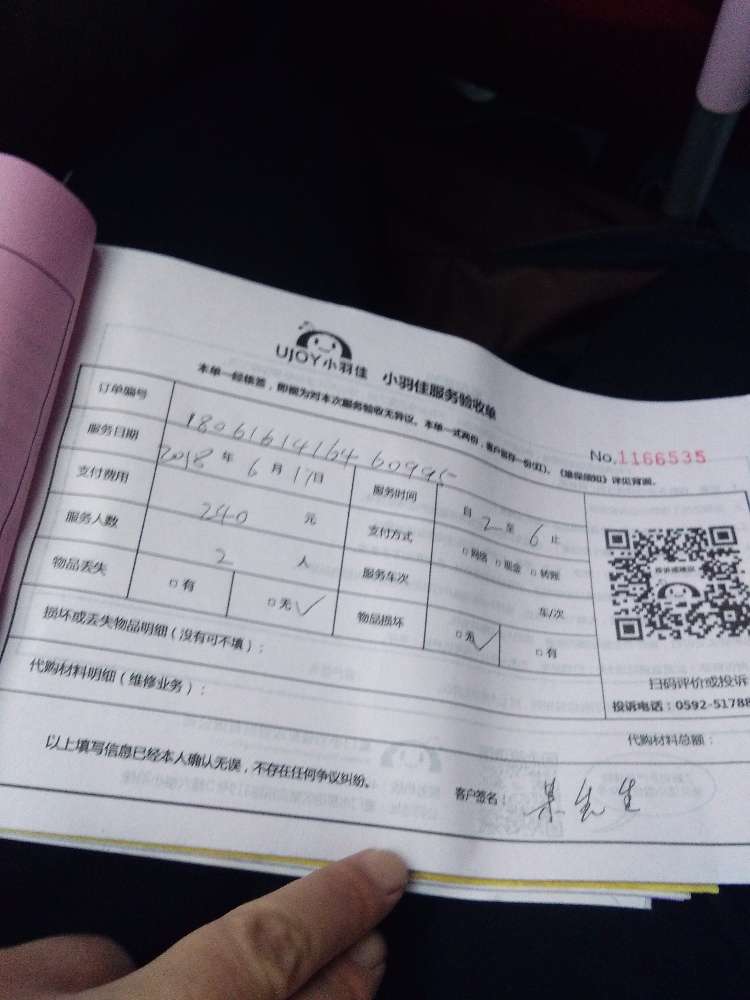 UJOY小羽佳 小羽佳服务验收单
本单一经核签，即视为对本次服务验收无异议。本单一式两份，客户留存一份(红)。《维保须知》详见背面。
No.1166535
订单编号
服务日期 2018 年 6 月 17日 服务时间 自 2 至 6 止
支付费用 240 元 支付方式 □网络 □现金 □转账
服务人数 2 人 服务车次 车/次
物品丢失 □有 □无✓ 物品损坏 □无✓ □有
投诉或建议
扫码评价或投诉
投诉电话：0592-51788
损坏或丢失物品明细（没有可不填）：
代购材料明细（维修业务）：
代购材料总额：
以上填写信息已经本人确认无误，不存在任何争议纠纷。
客户签名： 先生